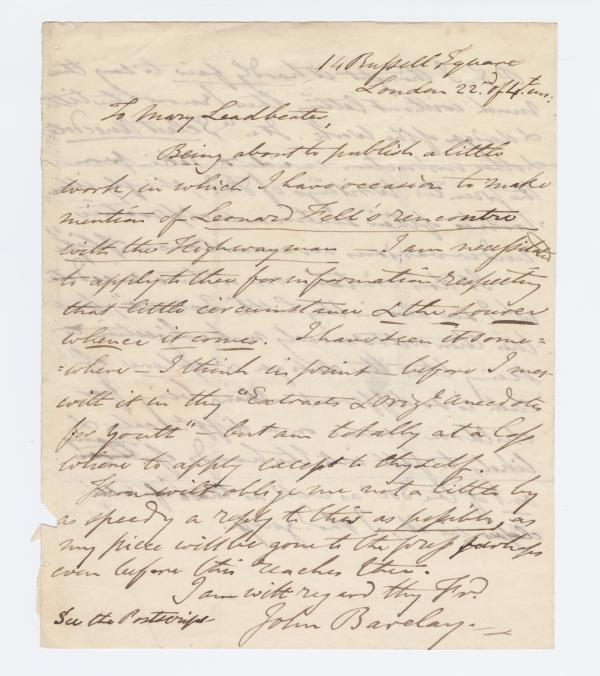 14 Russell Square
London 22.d of 4th mo:
To Mary Leadbeater,
Being about to publish a little
work, in which I have occasion to make
mention of Leonard Fell's rencontre
with the Highwayman — I am necessitated
to apply to thee for information respecting
that little circumstance & the source
whence it comes. I have seen it some=
=where — I think in print — before I met
with it in thy "Extracts & orig.l anecdotes
for youth" — but am totally at a loss
where to apply except to thyself.
Thou wilt oblige me not a little by
as speedy a reply to this as possible, as
my piece will be gone to the press perhaps
even before this reaches thee.
I am with regard thy Fr.d
See the Postscript
John Barclay.